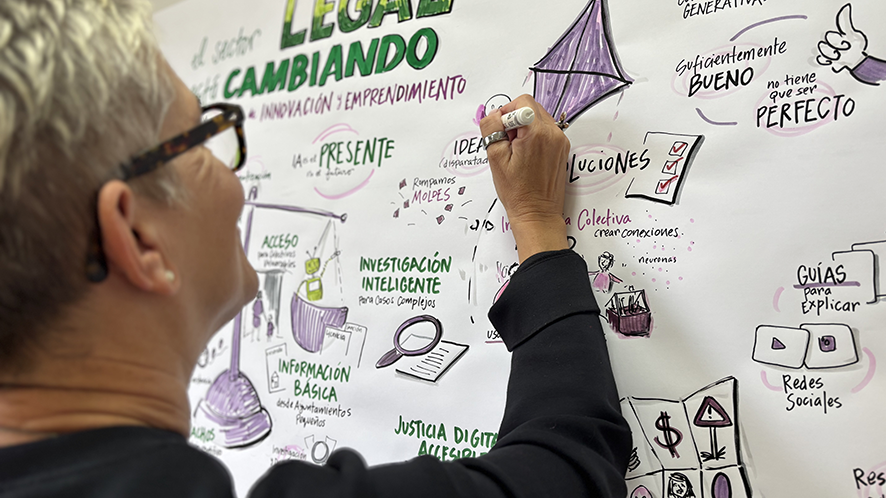 el sector
LEGAL
CAMBIANDO
INNOVACIÓN Y EMPRENDIMIENTO
IA es el PRESENTE
no es el futuro
IDEAS
disparatadas
Rompamos
MOLDES
SOLUCIONES
Colectiva
crear conexiones
neuronas
GENERATIVA
Suficientemente
BUENO
no tiene
que ser
PERFECTO
ACCESO
para Colectivos
INVESTIGACIÓN
INTELIGENTE
para Casos Complejos
INFORMACIÓN
BÁSICA
desde Ayuntamientos
Pequeños
JUSTICIA DIGITAL
ACCESIBLE
GUÍAS
para
Explicar
Redes
Sociales
$